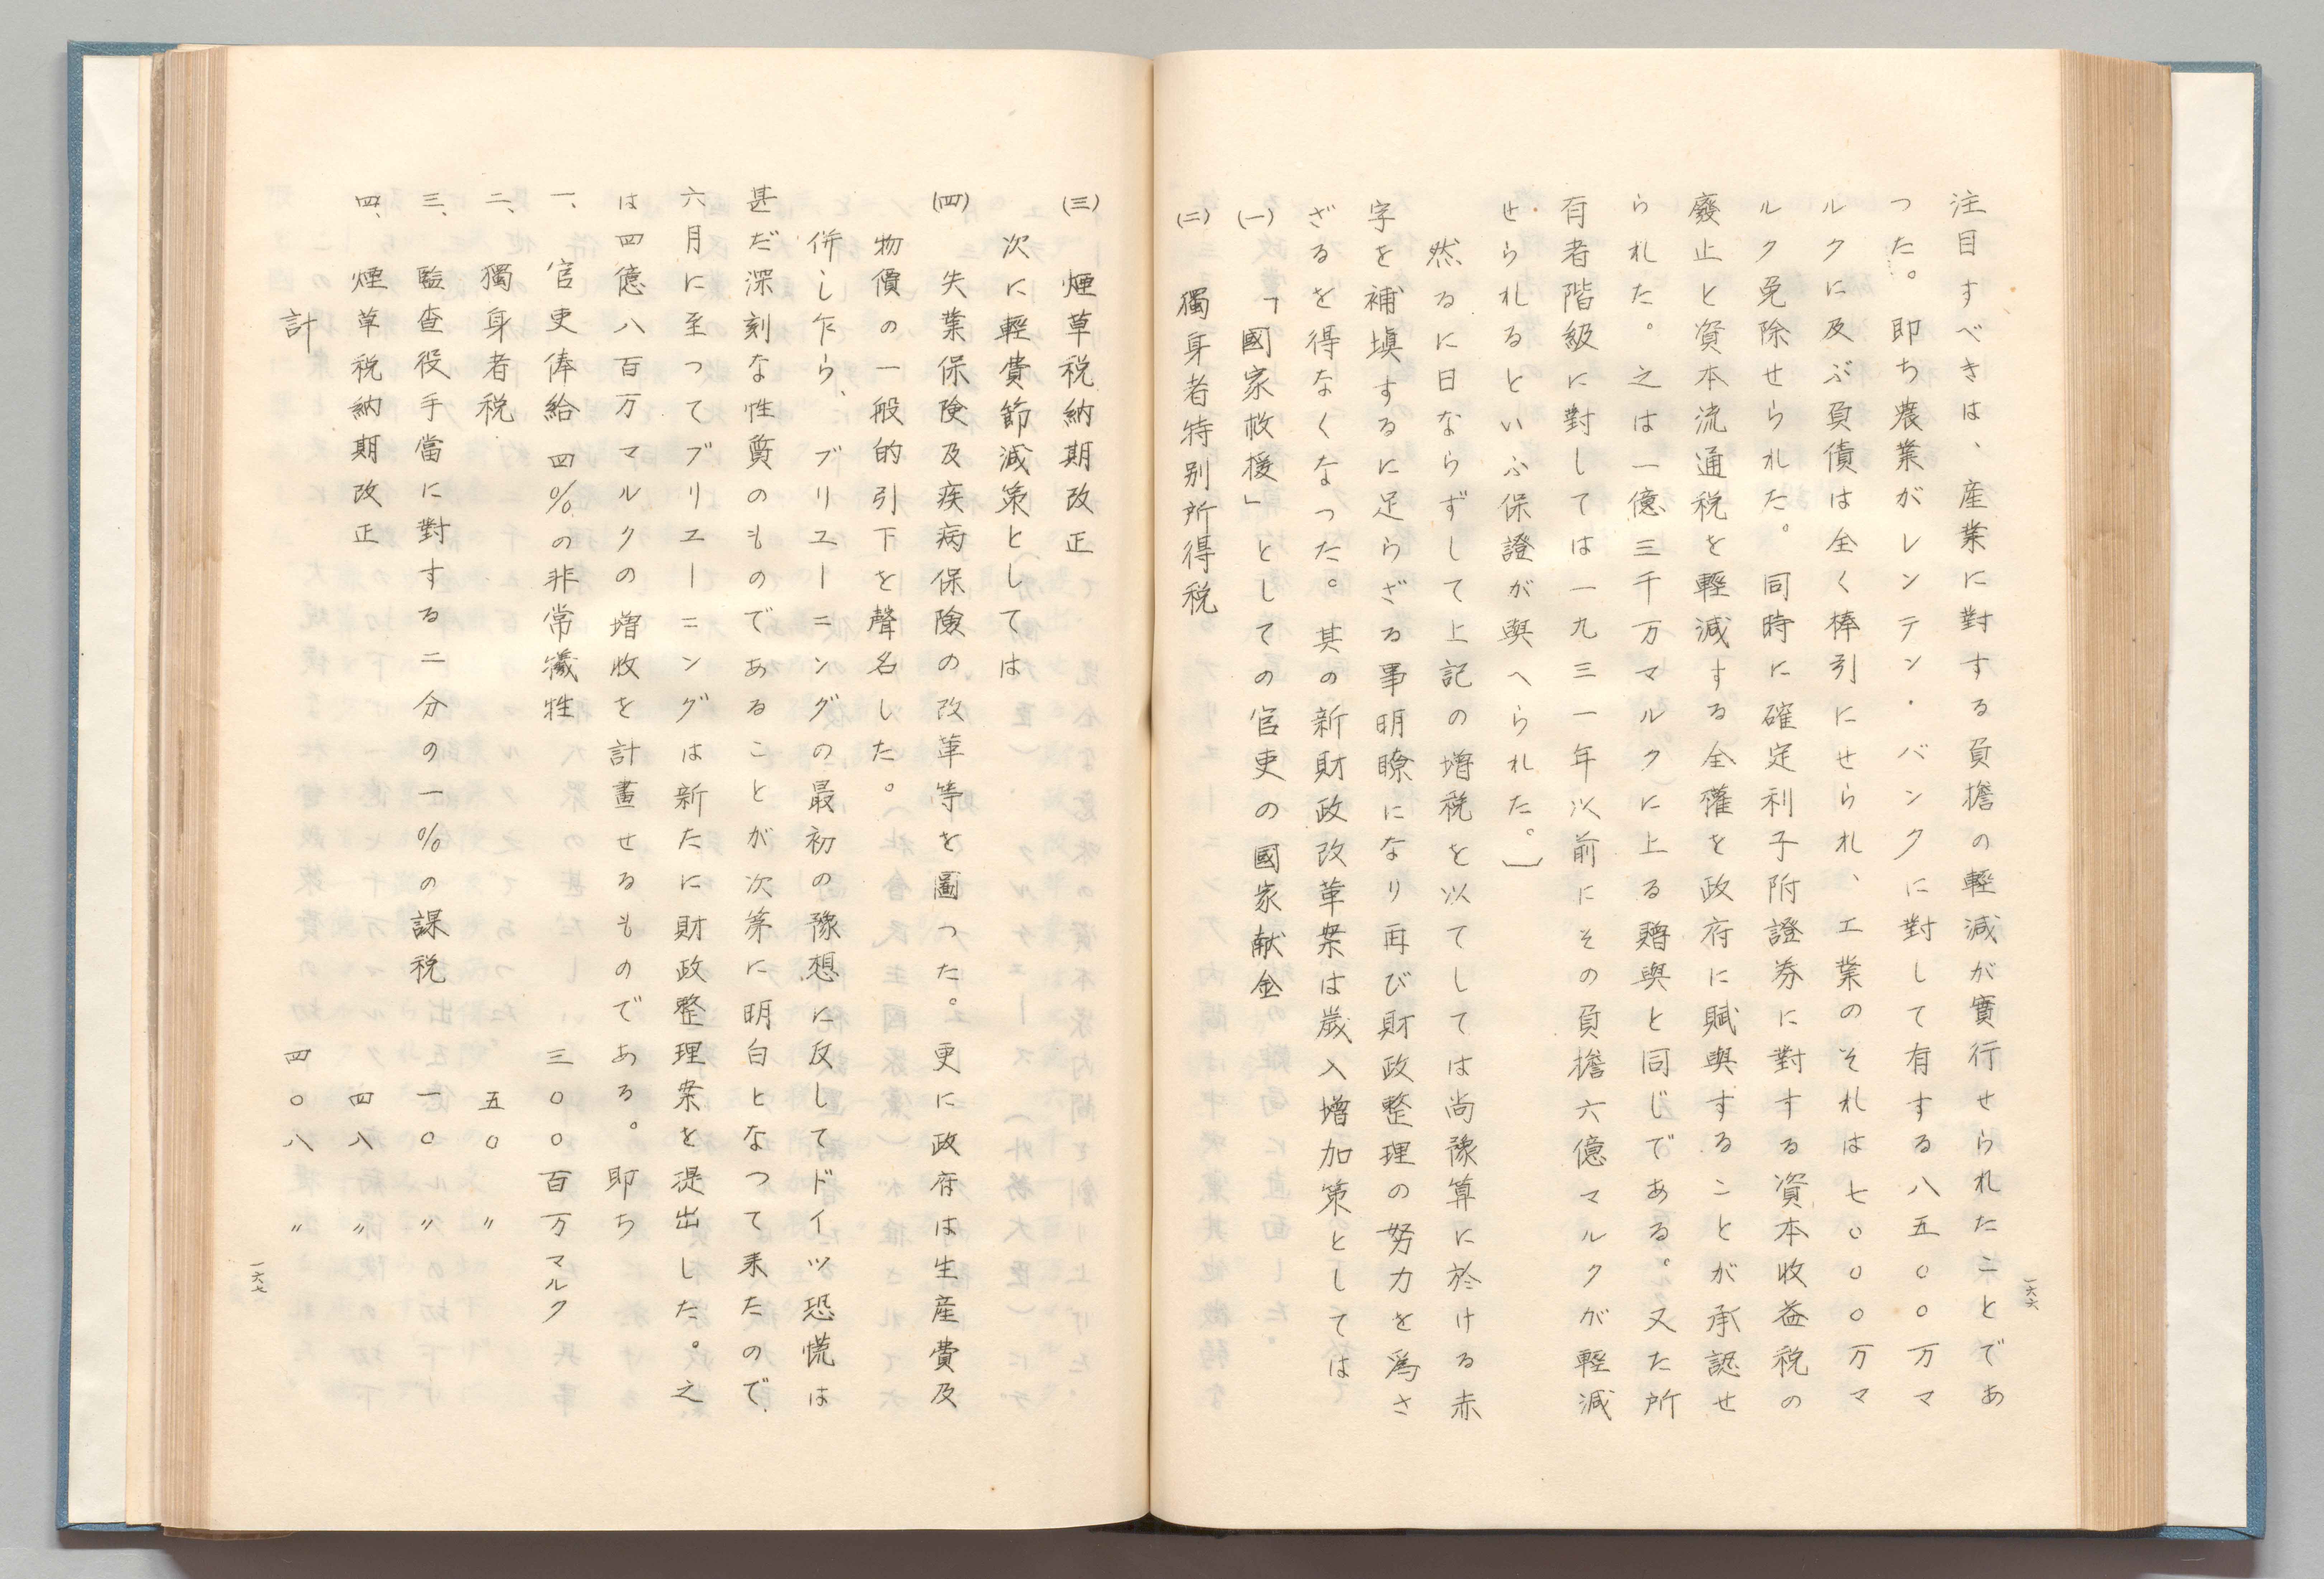 注目すべきは、産業に對する負擔の輕減が實行せられたことであ
つた。即ち農業がレンテン・バンクに對して有する八五〇〇万マ
ルクに及ぶ負債は全く棒引にせられ、工業のそれは七〇〇〇万マ
ルク免除せられた。同時に確定利子附證券に對する資本收益税の
廢止と資本流通税を輕減する全權を政府に賦與することが承認せ
られた。之は一億三千万マルクに上る贈與と同じである。又た所
有者階級に對しては一九三一年以前にその負擔六億マルクが輕減
せられるといふ保證が與へられた。〕
然るに日ならずして上記の増税を以てしては尚豫算に於ける赤
字を補塡するに足らざる事明瞭になり再び財政整理の努力を爲さ
ざるを得なくなつた。其の新財政改革案は歳入増加策としては
(一)「國家救援」としての官吏の國家献金
(二)獨身者特別所得税
一六六
(三)煙草税納期改正
次に輕費節減策としては
(四)失業保険及疾病保險の改革等を圖つた。更に政府は生産費及
物價の一般的引下を聲名した。
併し乍ら、ブリユーニングの最初の豫想に反してドイツ恐慌は
甚だ深刻な性質のものであることが次第に明白となつて来たので
六月に至つてブリエーニングは新たに財政整理案を提出した。之
は四億八百万マルクの増收を計畫せるものである。即ち
一、官吏俸給四%の非常犠牲 三〇〇百万マルク
二、獨身者税 五〇〃
三、監査役手當に對する二分の一%の課税 一〇〃
四、煙草税納期改正 四八〃
計 四〇八〃
一六七